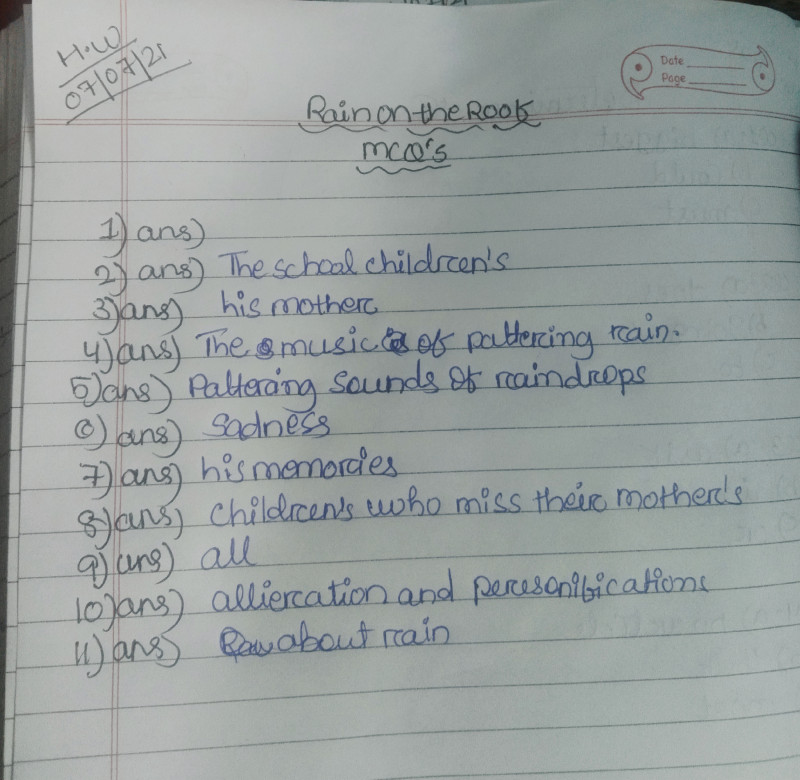 H.W
07/07/21
Date
Page
Rain on the Roof
MCQ's
1) ans)
2) ans) The school children's
3) ans) his mother
4) ans) The music of pattering rain.
5) ans) Pattering sounds of raindrops
6) ans) sadness
7) ans) his memories
8) ans) children's who miss their mother's
9) ans) all
10) ans) alliercation and peresonifications
11) ans) about rain